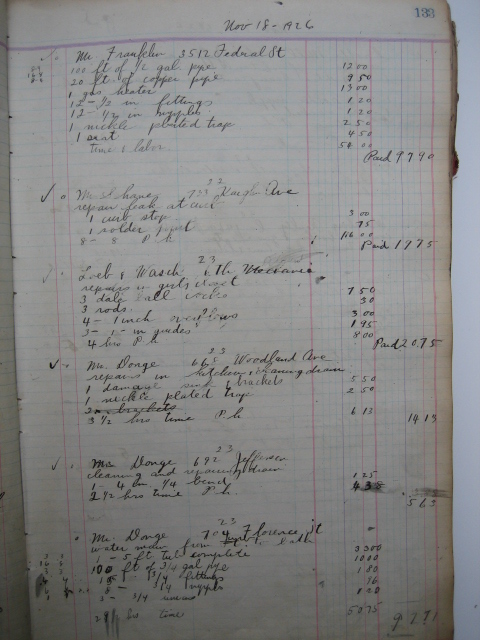 133
Nov 18-1926
Mr Franklin 3512 Federal St
100 ft of 1/2 gal pipe 12 00
20 ft of copper pipe 9 50
1 gas heater 13 00
12 - 1/2 in fittings 1 20
12 - 1/2 in nipples 1 20
1 nickle plated trap 2 50
1 seat 4 50
time & labor 54 00
Paid 97 90
22
733 Ave
repair leak at curb
1 curb stop 3 00
1 solder joint 75
8 - 8 P. h
Paid 17 75
23
Loeb & 6th
repairs in girls closet
3 ball cocks 7 50
3 rods 30
4 - 1 inch 3 00
3 - 1 - in guides 1 95
4 hrs P.h 8 00
Paid 20.75
23
Mr. Donge 668 Woodland Ave
repairs in kitchen & cleaning drain
1 sink & brackets 5 50
1 nickle plated trap 2 50
2 brackets
3 1/2 hrs time P.h 6 13
14 13
23
Mr. Donge 692 Jefferson
cleaning and repairing drain
1 - 4 in 1/4 bend 1 25
2 1/2 hrs time P.h. 4 38
5 63
23
Mr. Donge 704 Florence st
water new from
1 - 5 ft tub complete 33 00
100 ft of 3/4 gal pipe 10 00
18 - 3/4 fittings 1 80
8 - 3/4 nipples 96
3 - 3/4 unions 1 20
29 hrs time 50 75
97 71